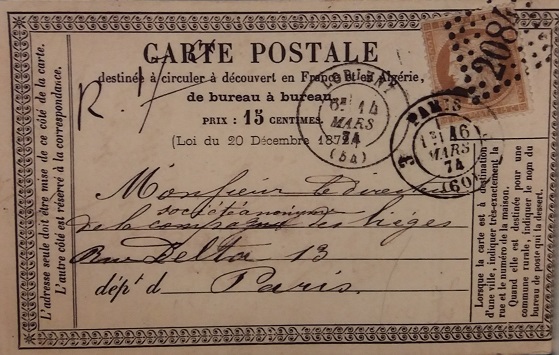 CARTE POSTALE
destinée à circuler à découvert en France et en Algérie,
de bureau à bureau.
PRIX : 15 CENTIMES.
(Loi du 20 Décembre 1872)
R. 17
LORIENT
6E 14
MARS
74
(54)
PARIS
16
MARS
74
(60)
3
2084
Monsieur le Directeur
société anonyme
de la compagnie des lièges
Rue Delta 13
dépt d Paris.
L'adresse seule doit être mise de ce côté de la carte.
L'autre côté est réservé à la correspondance.
Lorsque la carte est à destination
d'une ville, indiquer très-exactement la
rue et le numéro de la maison.
Quand elle est destinée pour une
commune rurale, indiquer le nom du
bureau de poste qui la dessert.